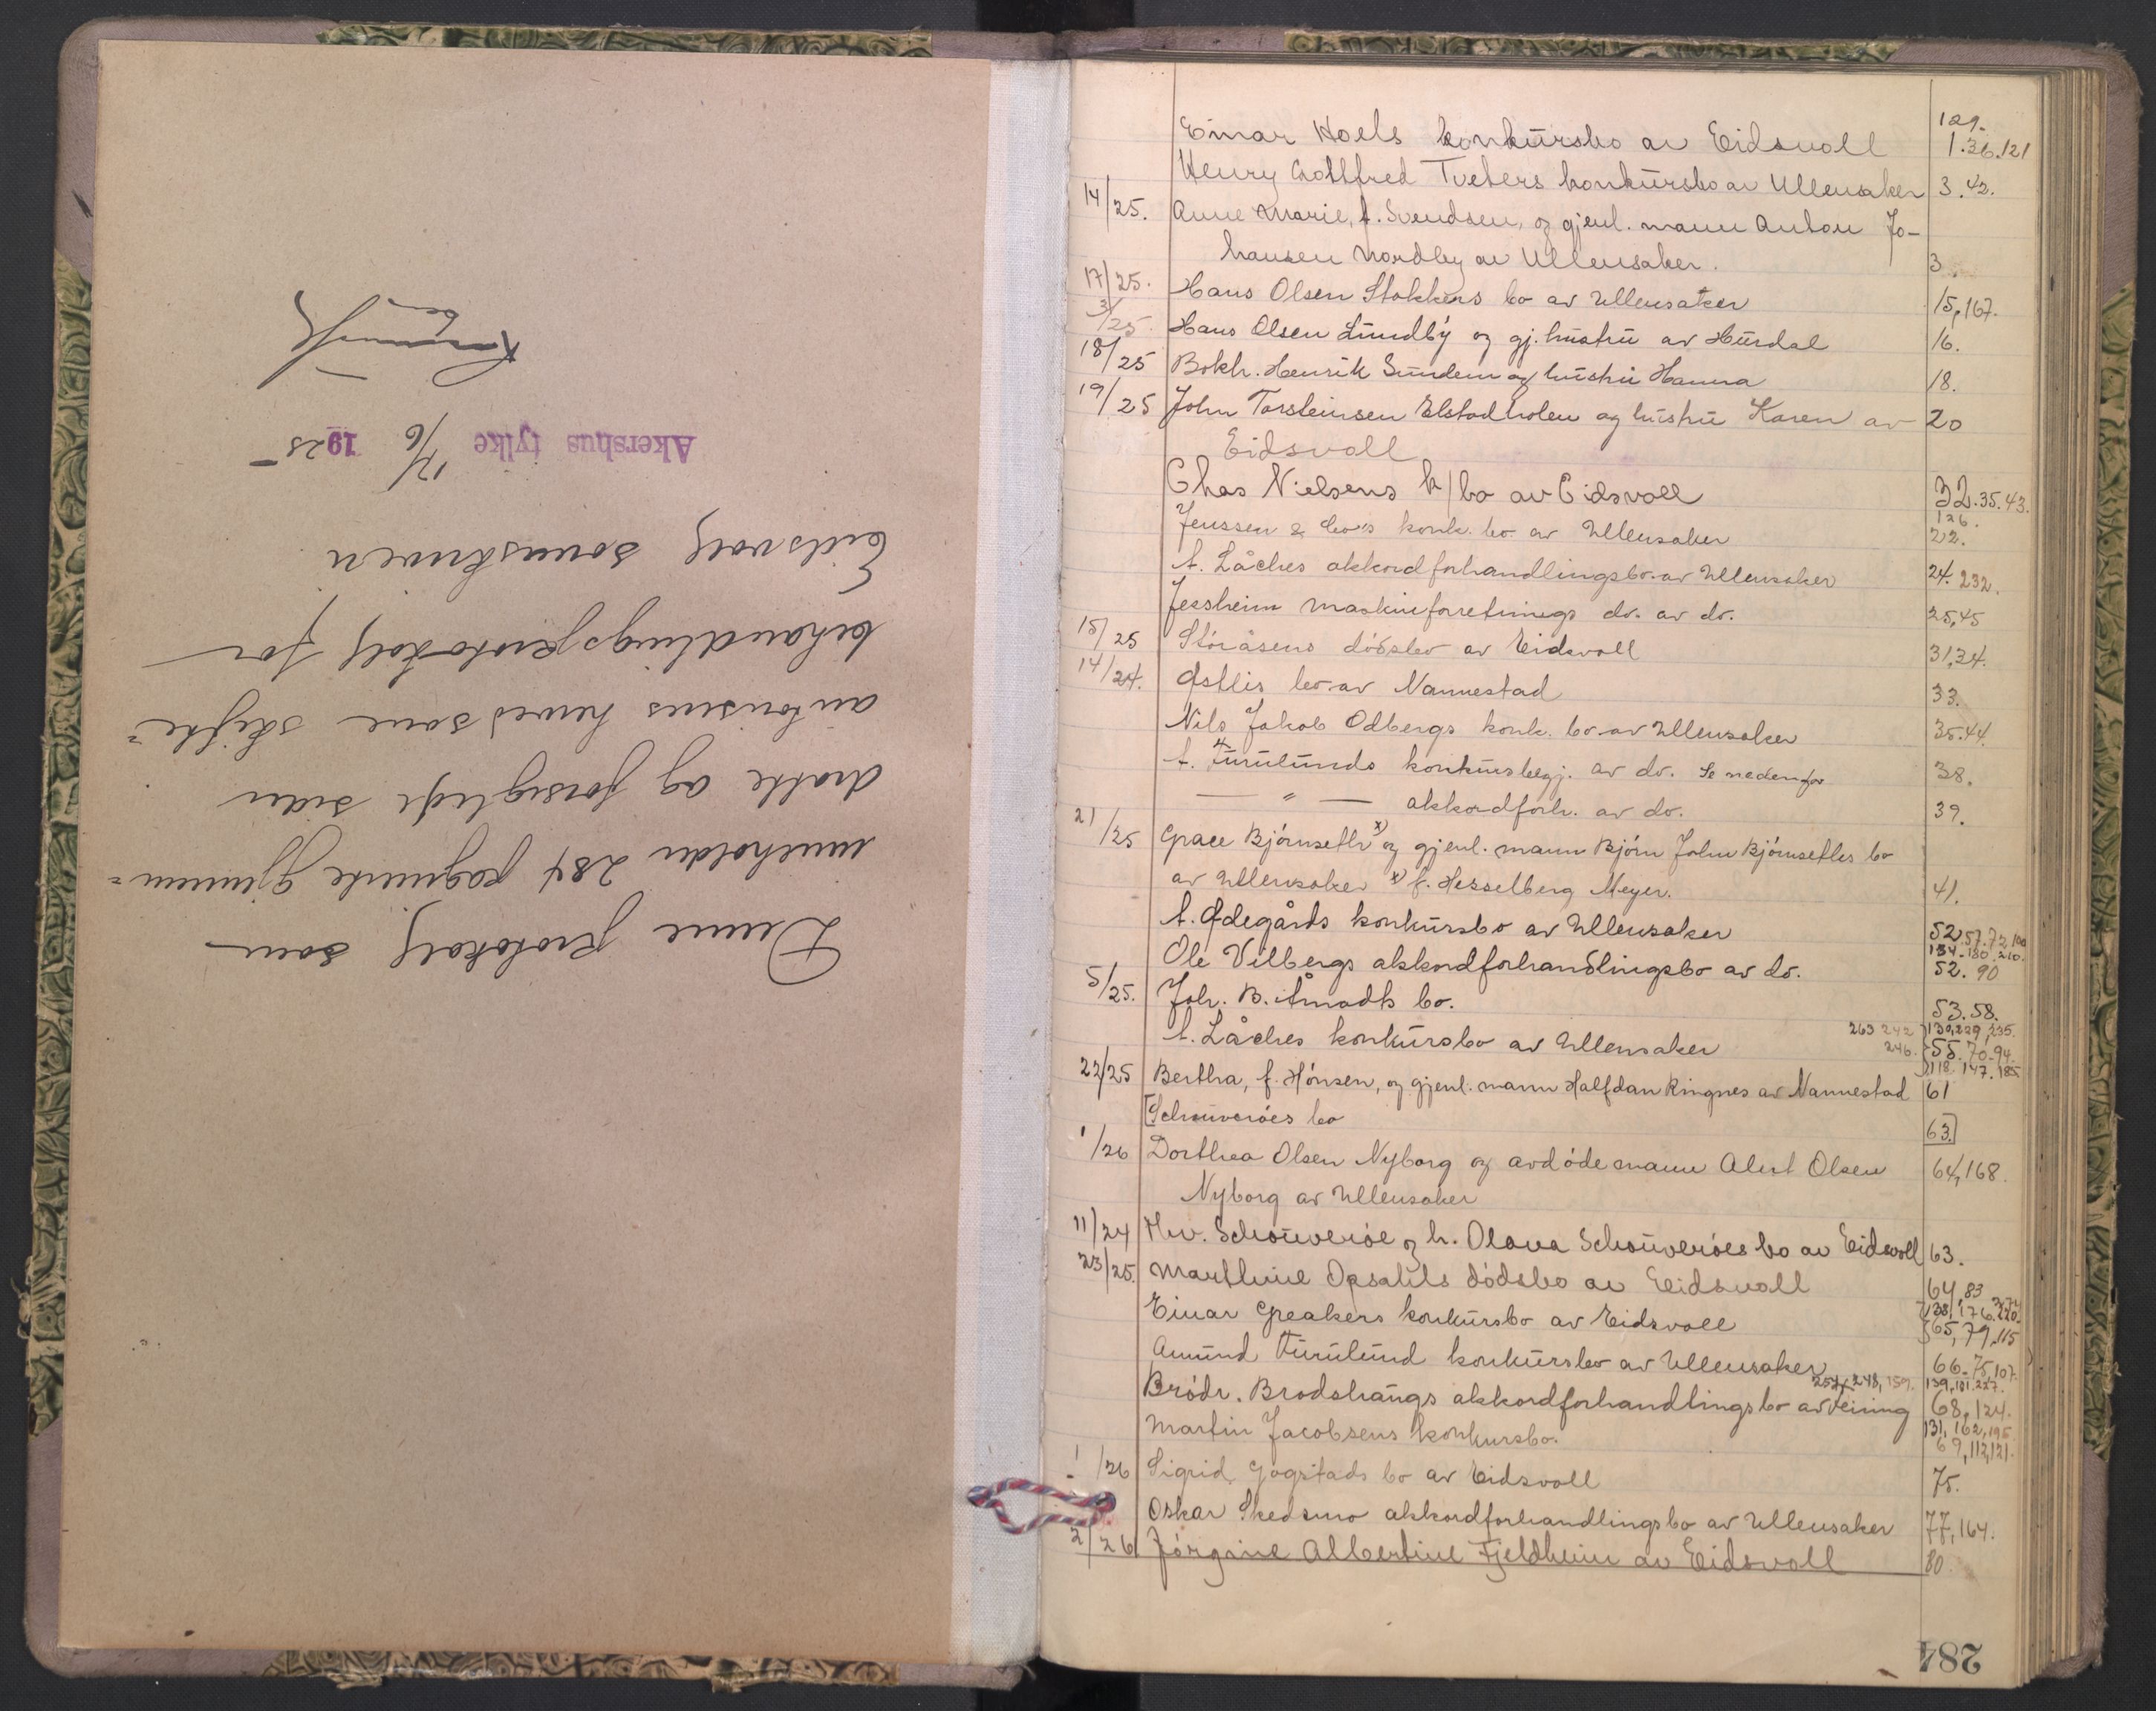 Denne protokoll som
inneholder 284 paginerte gjennem=
dratte og forseglede sider
autoriseres herved som skifte=
behandlingsprotokoll for
Eidsvoll sorenskriveri
Akershus fylke 12/6 1925
129.
Einar Hoels konkursbo av Eidsvoll 1.36.121
Henry Gottfred Tveters konkursbo av Ullensaker 3.42.
14/25. Anne Marie, f. Svendsen, og gjenl. mann Anton Jo-
hansen Nordby av Ullensaker. 3.
17/25. Hans Olsen Stokkens bo av Ullensaker 15,167.
3/25. Hans Olsen Lundby og gj. hustru av Hurdal 16.
18/25 Bokh. Henrik Sundem og hustru Hanna 18.
19/25 John Torsteinsen Elstadholen og hustru Karen av 20
Eidsvoll
Chas Nielsens k/bo av Eidsvoll 32.35.43.
126.
Jenssen & Co's konk. bo av Ullensaker 22.
A. Låches akkordforhandlingsbo av Ullensaker 24. 232.
Jessheim Maskinforretnings do. av do. 25,45
15/25 Storåsens dødsbo av Eidsvoll 31,34.
14/24. Østlis bo av Nannestad 33.
Nils Jakob Odbergs konk. bo av Ullensaker 35.44.
A. Furulunds konkursbegj. av do. Se nedenfor 38.
— " — akkordforh. av do. 39.
21/25 Grace Bjørnseth x) og gjenl. mann Bjørn John Bjørnseths bo
av Ullensaker x) f. Hesselberg Meyer. 41.
A. Ødegårds konkursbo av Ullensaker 52.57.72.100
134.180.210.
Ole Vilbergs akkordforhandlingsbo av do. 52. 90
5/25. Joh. B. Åmodts bo. 53.58.
263 242 130,229,235.
A. Låches konkursbo av Ullensaker 246. 55.70.94.
118.147.185
22/25 Bertha, f. Hønsen, og gjenl. mann Halfdan Ringnes av Nannestad 61
[Schouverøes bo 63.]
1/26 Dorthea Olsen Nyborg og avdøde mann Alert Olsen 64,168.
Nyborg av Ullensaker
11/24 Hv. Schouverøe og h. Olava Schouverøes bo av Eidsvoll 63.
23/25. Marthine Opsahls dødsbo av Eidsvoll 64,83
138,176.220.
Einar Greakers konkursbo av Eidsvoll 65,79,115
Amund Furulund konkursbo av Ullensaker 66.75,107.
254, 248, 159. 139,181.227.
Brødr. Brodshaugs akkordforhandlingsbo av Feiring 68,124.
131,162,195
Martin Jacobsens konkursbo. 69,112,121.
1/26 Sigrid Gogstads bo av Eidsvoll 75.
Oskar Skedsmo akkordforhandlingsbo av Ullensaker 77,164.
2/26 Jørgine Albertine Fjeldheim av Eidsvoll 80.
284